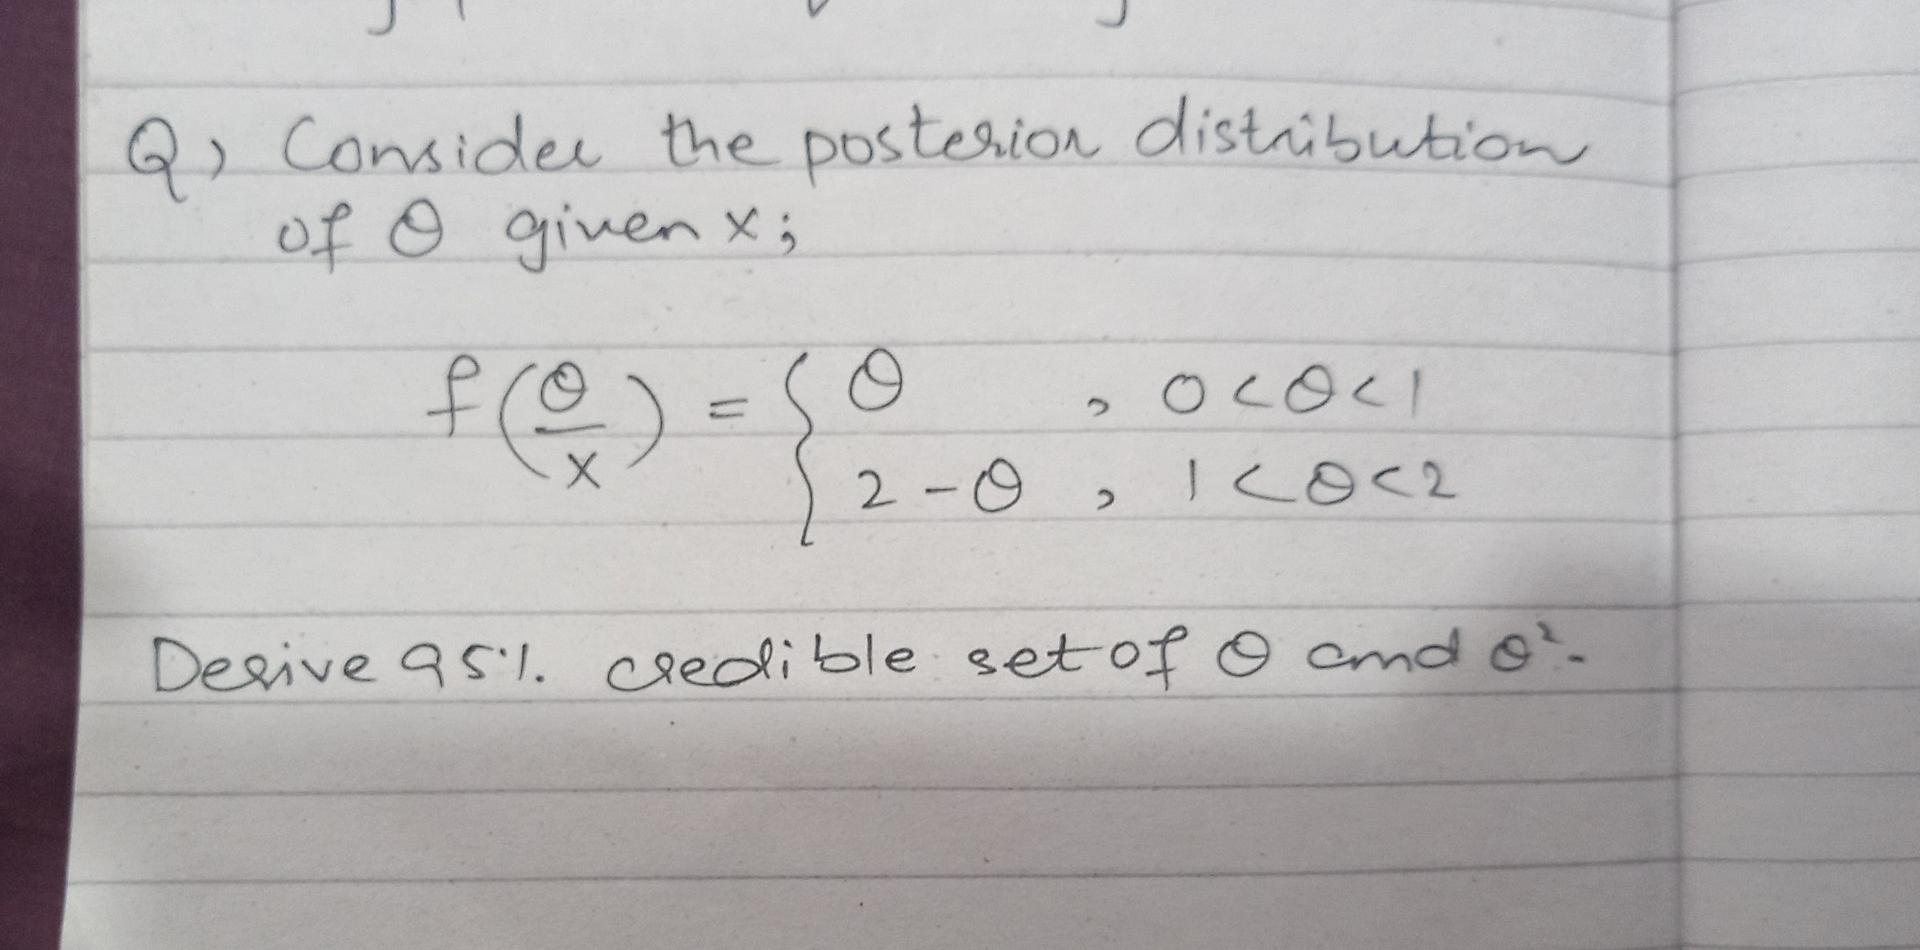 Q, Consider the posterior distribution
of θ given x;
f(θ/x) = { θ , 0<θ<1
2-θ , 1<θ<2
Derive 95%. credible set of θ and θ².